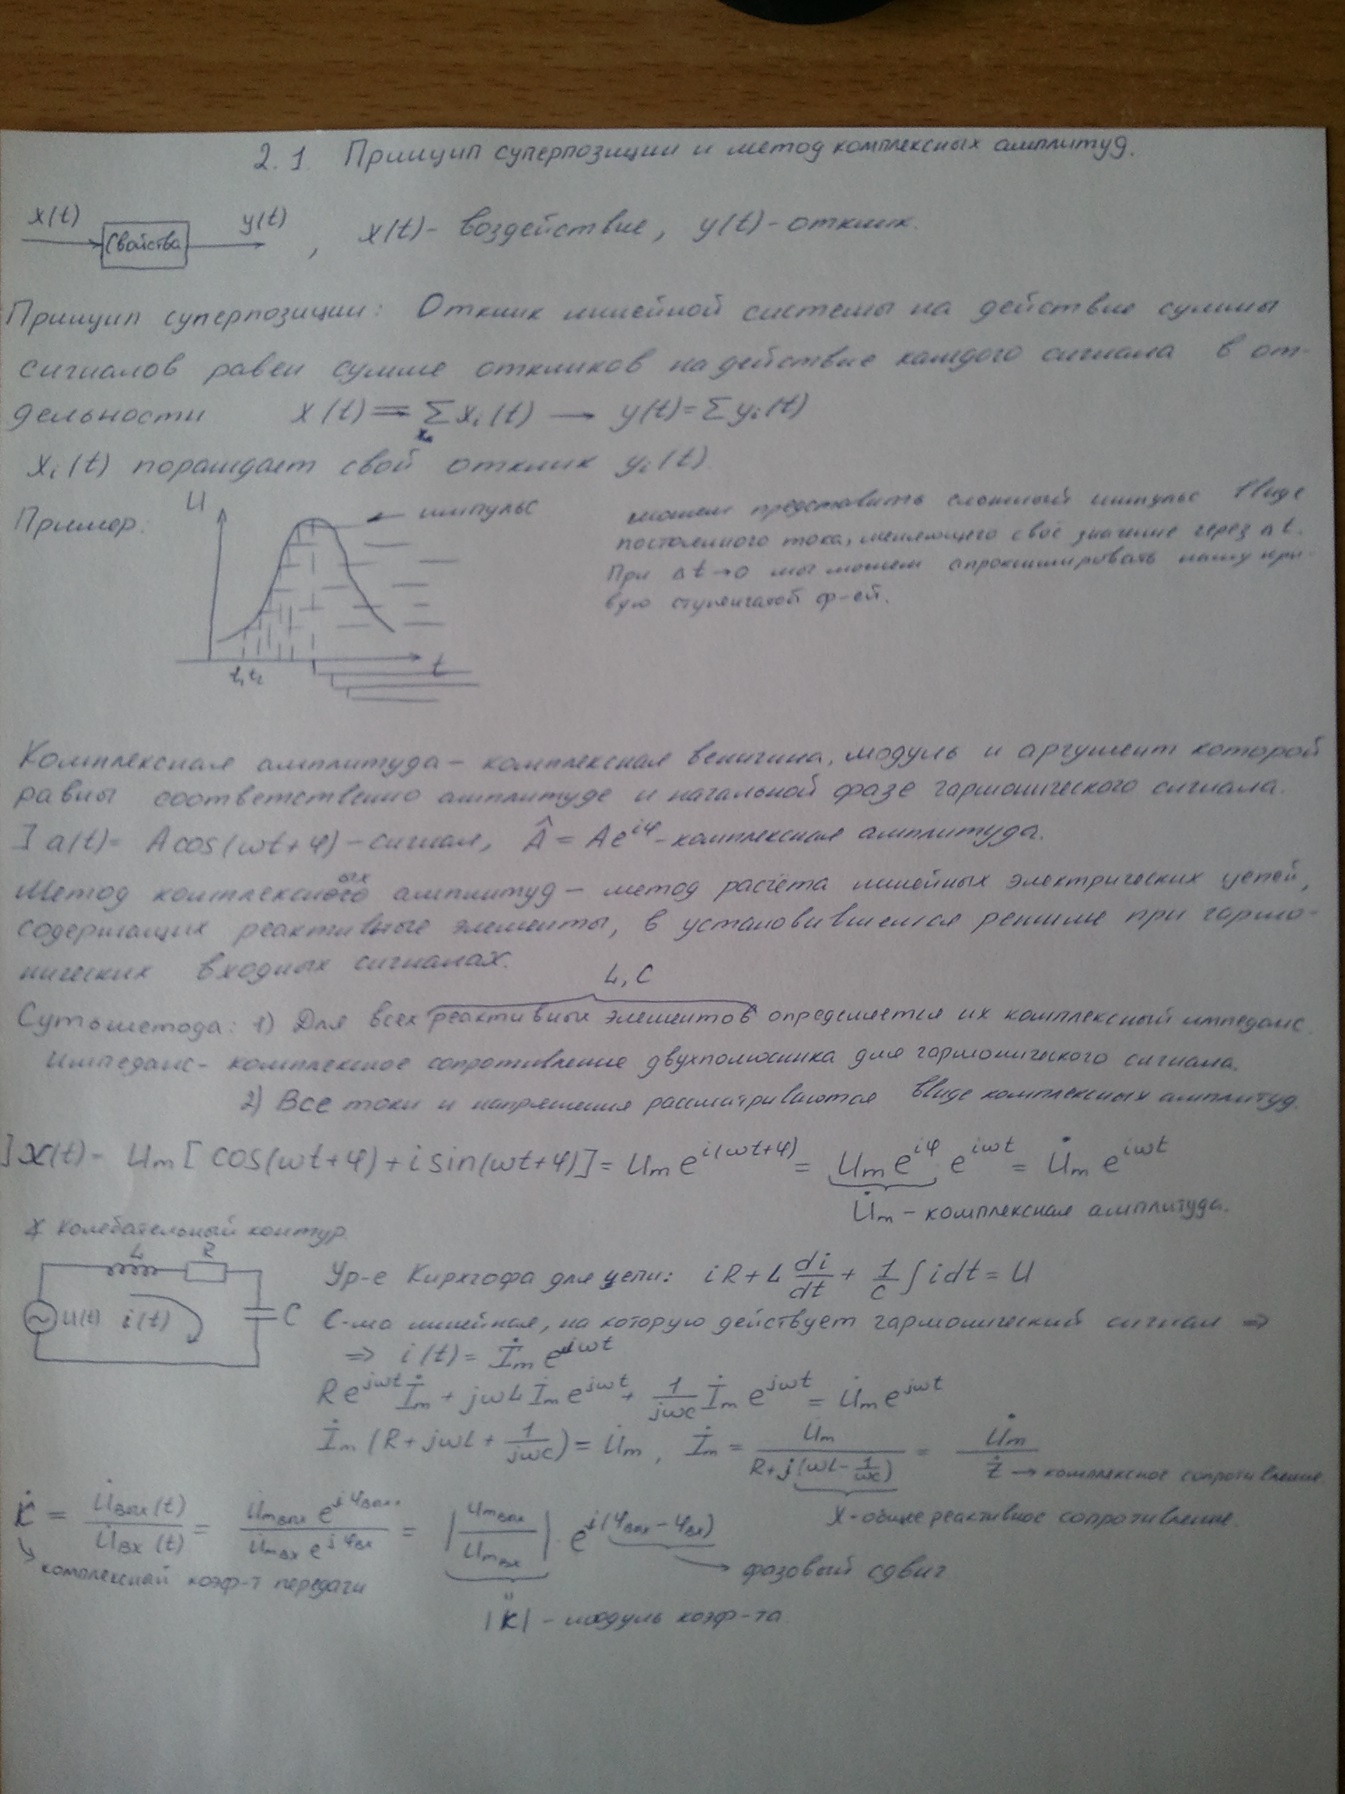 2.1. Принцип суперпозиции и метод комплексных амплитуд.
x(t) Свойства y(t) , x(t) - воздействие, y(t) - отклик.
Принцип суперпозиции: Отклик линейной системы на действие суммы
сигналов равен сумме откликов на действие каждого сигнала в от-
дельности x(t) = Σ xᵢ(t) → y(t) = Σ yᵢ(t)
xᵢ(t) порождает свой отклик yᵢ(t)
Пример. U импульс
t₁ t₂ t
можем представить сложный импульс в виде
постоянного тока, меняющего своё значение через Δt.
При Δt→0 мы можем апроксимировать нашу кри-
вую ступенчатой ф-ей.
Комплексная амплитуда – комплексная величина, модуль и аргумент которой
равны соответственно амплитуде и начальной фазе гармонического сигнала.
] a(t) = A cos(ωt+φ) – сигнал, Â = Ae^{iφ} – комплексная амплитуда.
Метод комплексных амплитуд – метод расчёта линейных электрических цепей,
содержащих реактивные элементы, в установившемся режиме при гармо-
нических входных сигналах.
L, C
Суть метода: 1) Для всех реактивных элементов определяется их комплексный импеданс.
Импеданс - комплексное сопротивление двухполюсника для гармонического сигнала.
2) Все токи и напряжения рассматриваются в виде комплексных амплитуд.
] X(t) - Um [cos(ωt+φ) + i sin(ωt+φ)] = Um e^{i(ωt+φ)} = Um e^{iφ} e^{iωt} = U̇m e^{iωt}
U̇m – комплексная амплитуда.
Колебательный контур
L R
U(t) i(t) C
Ур-е Кирхгофа для цепи: iR + L di/dt + 1/C ∫ i dt = U
С-ма линейная, на которую действует гармонический сигнал ⇒
⇒ i(t) = İm e^{jωt}
R e^{jωt} İm + jωL İm e^{jωt} + 1/(jωC) İm e^{jωt} = U̇m e^{jωt}
İm (R + jωL + 1/(jωC)) = U̇m, İm = U̇m/(R + j(ωL - 1/(ωC))) = U̇m/Ż → комплексное сопротивление.
X - общее реактивное сопротивление.
K̇ = U̇вых(t)/U̇вх(t) = U̇mвых e^{jφвых}/U̇mвх e^{jφвх} = |Umвых/Umвх| · e^{j(φвых - φвх)}
фазовый сдвиг
комплексный коэф-т передачи
|K̇| – модуль коэф-та